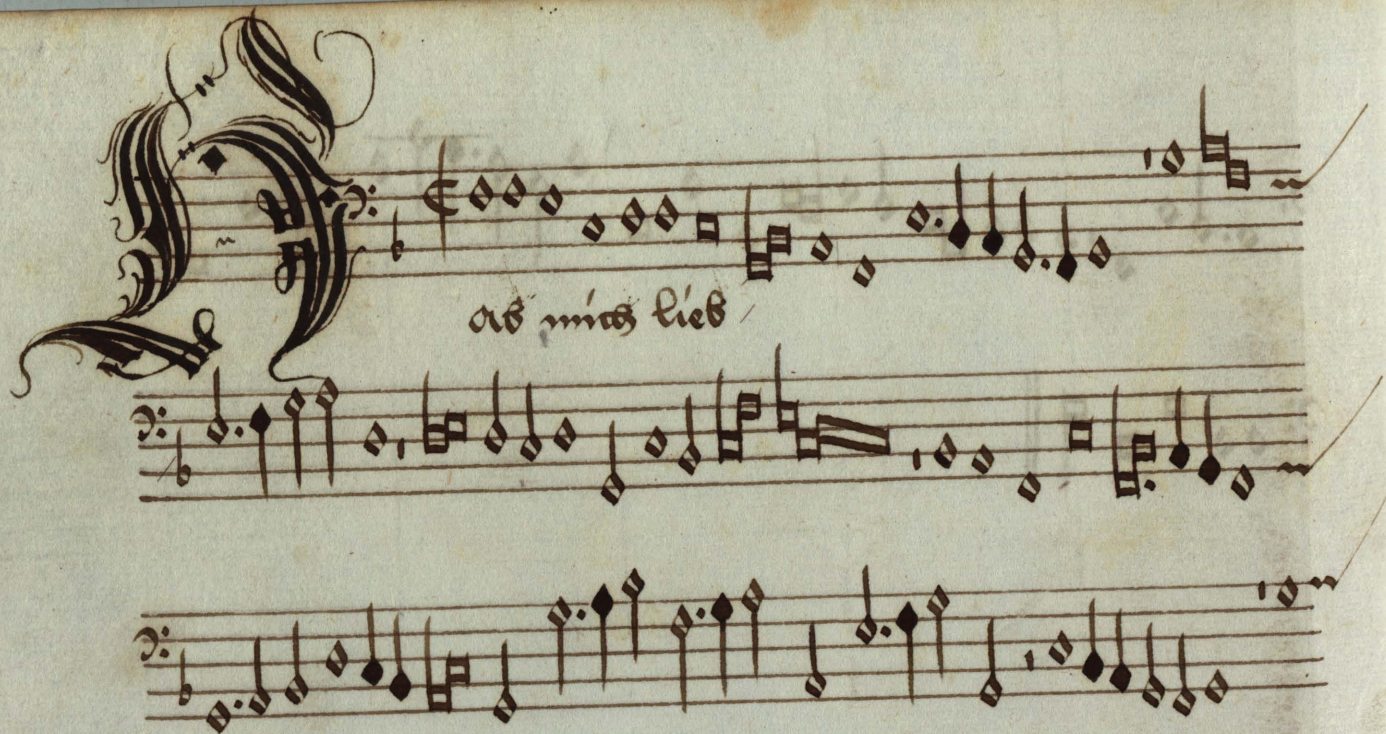 Was mich lieb